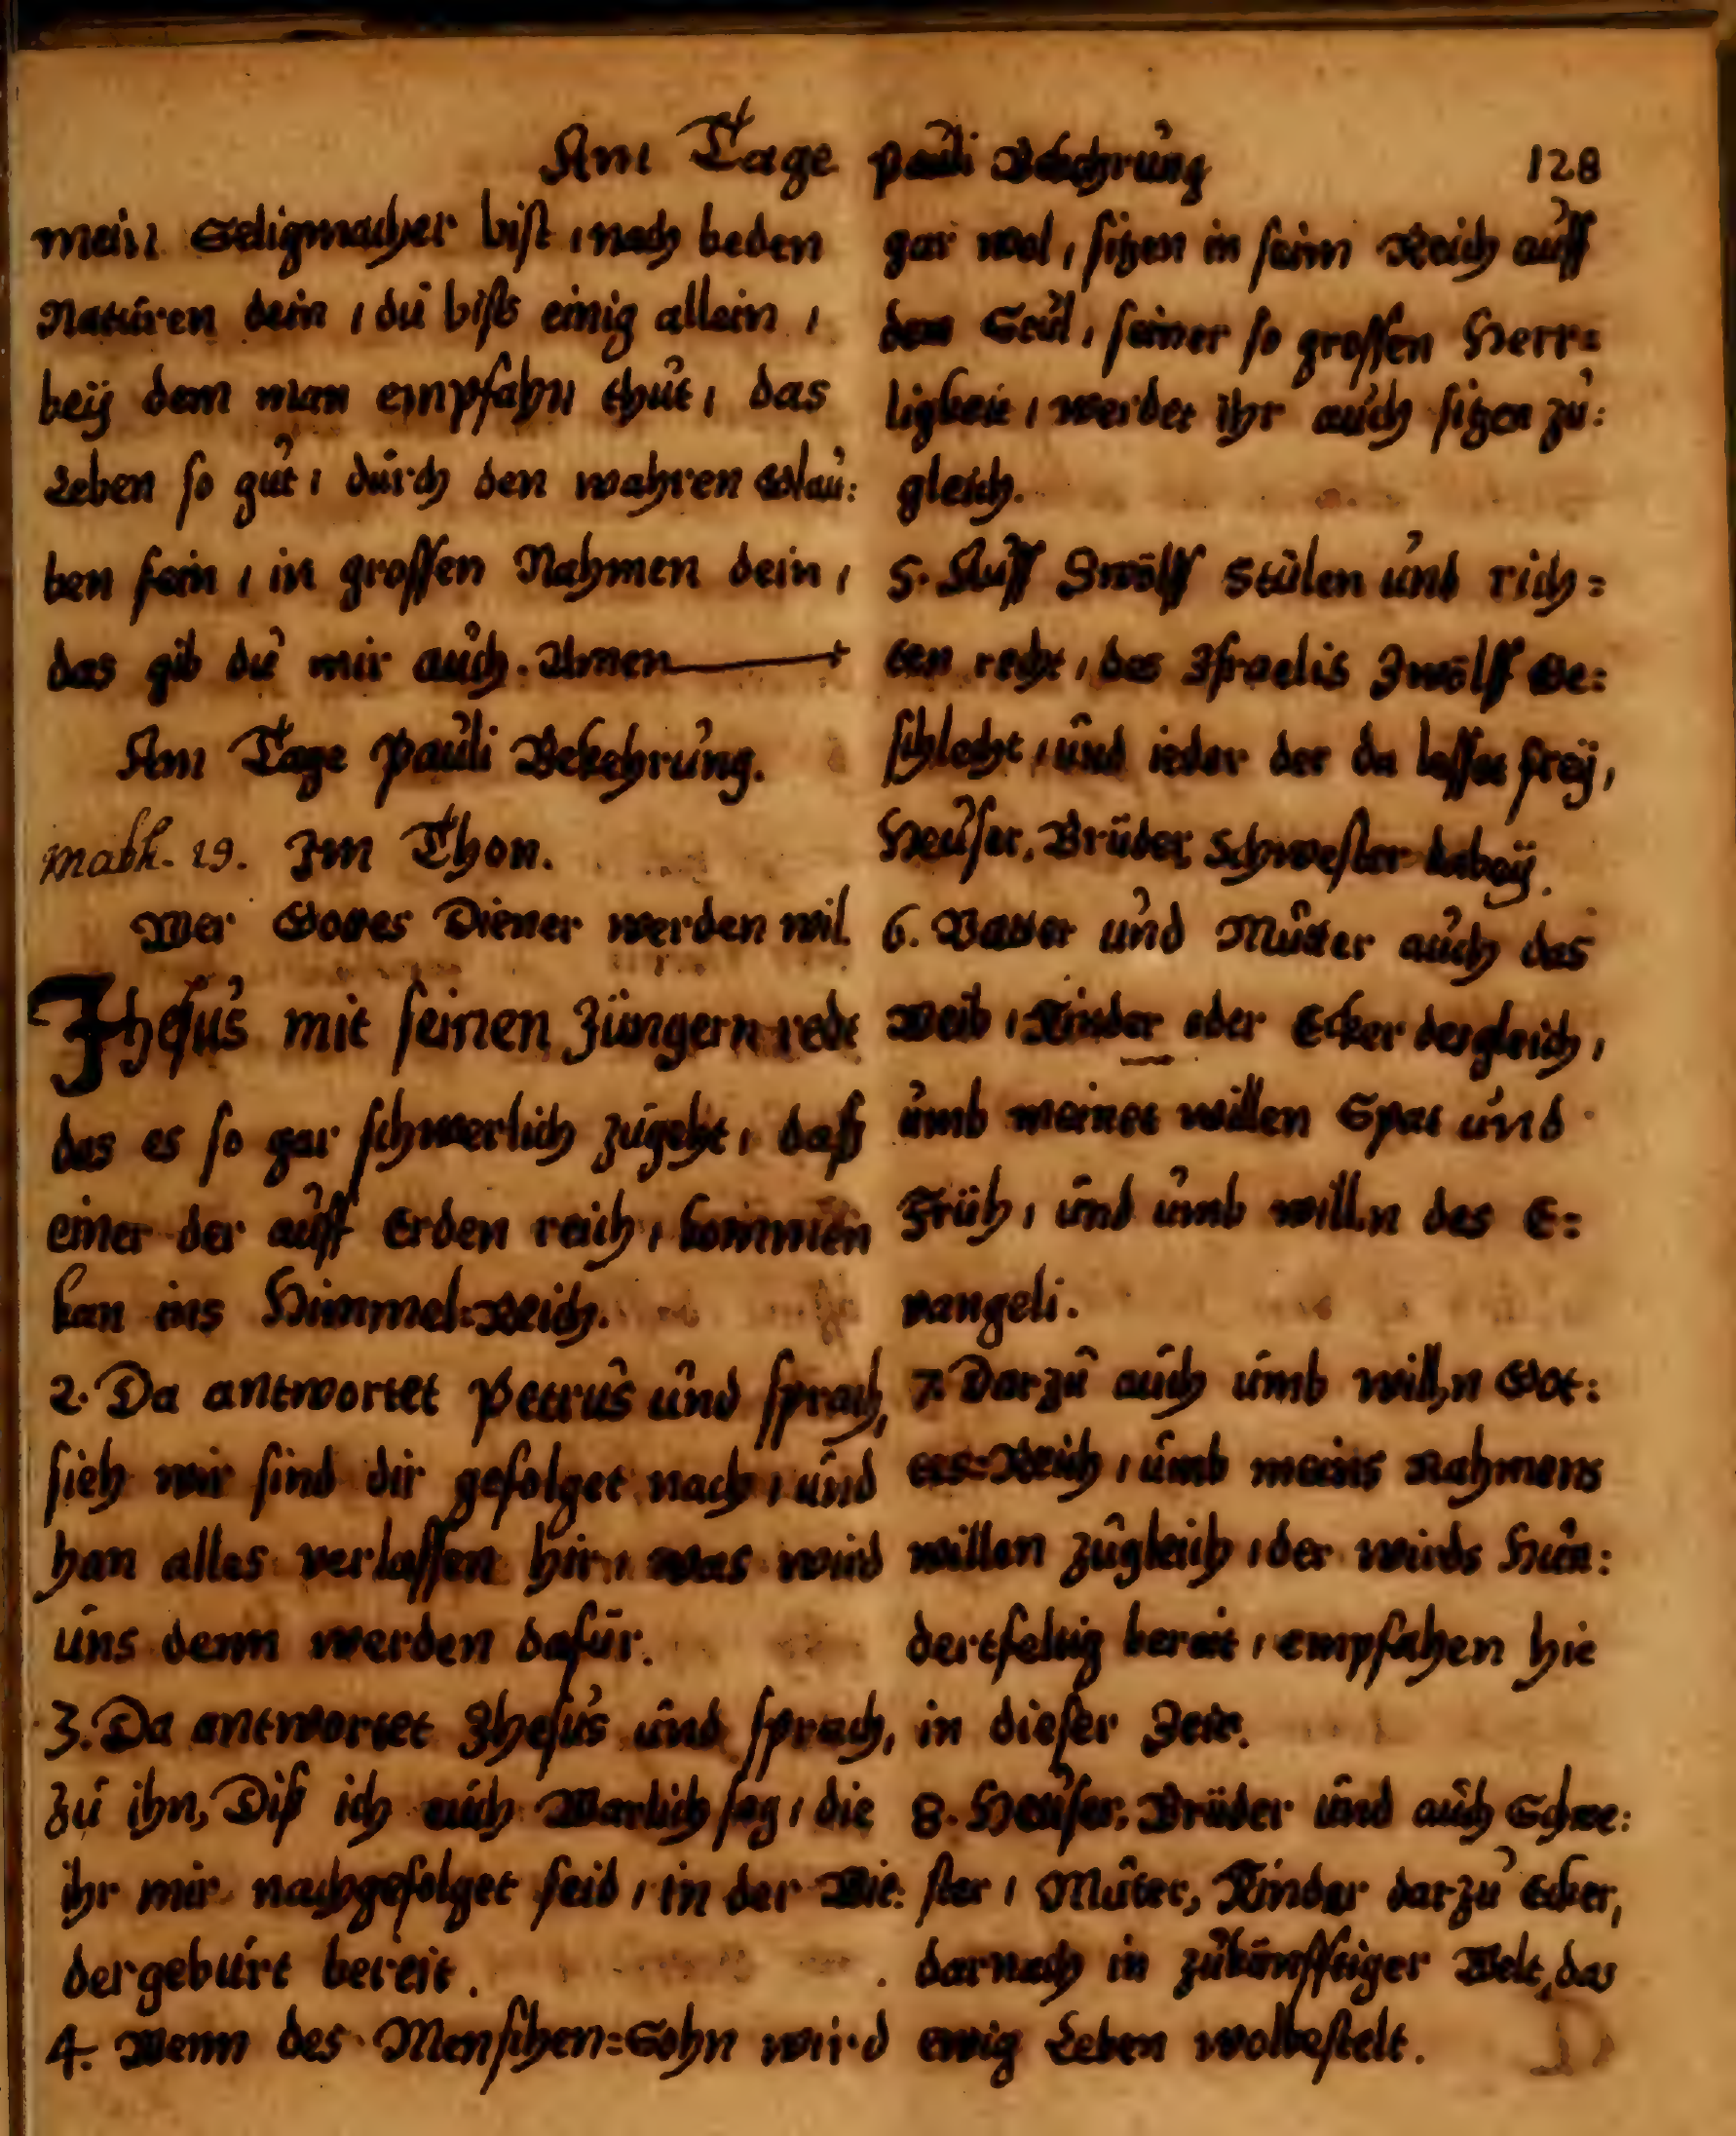 Am Tage Pauli Bekehrung 128
mein Seligmacher bist, nach beden
Naturen dein, du bists einig allein,
beÿ dem man empfahn thut, das
Leben so gut, durch den wahren Glau:
ben fein, in grossen Nahmen dein,
das gib du mir auch. Amen
Am Tage Pauli Bekehrung.
Math. 19. Im Thon.
Wer Gottes Diener werden wil.
Jhesus mit seinen Jüngern redt
das es so gar schwerlich zugeht, daß
einer der auff Erden reich, kommen
kan ins Himmel=Reich.
2. Da antwortet Petrus und sprach,
sieh wir sind dir gefolget nach, und
han alles verlassen hir, was wird
uns denn werden dafür.
3. Da antwortet Jhesus und sprach,
zu ihn, Diß ich euch Warlich sag, die
ihr mir nachgefolget seid, in der Wie:
dergeburt bereit.
4. Wenn des Menschen=Sohn wird
gar wol, sitzen in seim Reich auff
dem Stul, seiner so grossen Herr=
ligkeit, werdet ihr auch sitzen zu:
gleich.
5. Auff Zwölff Stülen und rich=
ten recht, das Israelis Zwölff Ge:
schlecht, und ieder der da lasset freÿ,
Heuser, Brüder, Schwester dabeÿ.
6. Vatter und Mutter auch das
Weib, Kinder oder Ecker dergleich,
umb meinet willen Spat und
Früh, und umb willn des E=
vangeli.
7. Darzu auch umb willn Got:
tes=Reich, umb meins Nahmens
willen zugleich, der wirds Hun:
dertfeltig bereit, empfahen hie
in dieser Zeit.
8. Heuser, Brüder und auch Schwe:
ster, Muter, Kinder darzu Ecker,
darnach in zukünfftiger Welt, das
ewig Leben wolbestelt.
D